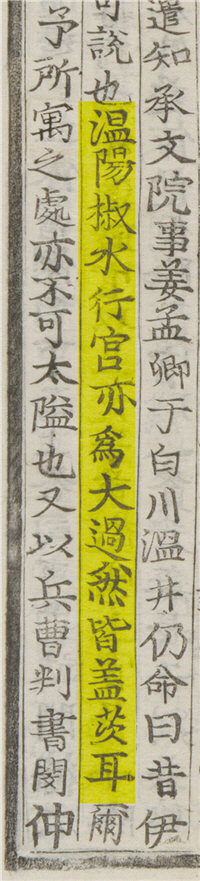 遣知承文院事姜孟卿于白川溫井仍命曰昔伊
可說也温陽椒水行宮亦爲大過然皆盖茨耳爾
予所寓之處亦不可太隘也又以兵曹判書閔伸